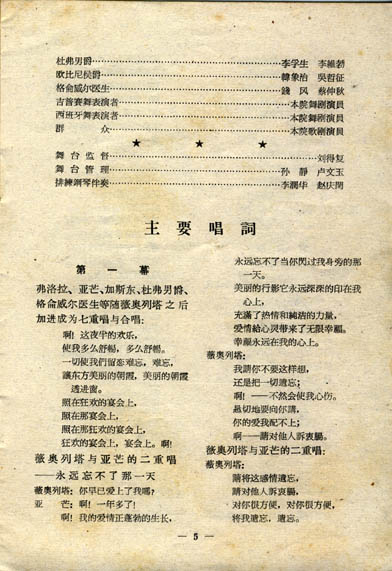 杜弗男爵……李学生 李維勃
欧比尼侯爵……韓象治 吳哲征
格侖威尔医生……錢风 蔡仲秋
吉普賽舞表演者……本院舞剧演員
西班牙舞表演者……本院舞剧演員
群众……本院歌剧演員
★ ★ ★
舞台監督……刘得复
舞台管理……孙靜 卢文玉
排練鋼琴伴奏……李潤华 赵庆閏
主要唱詞
第一幕
弗洛拉、亚芒、加斯东、杜弗男爵、
格侖威尔医生等随薇奥列塔之后
加进成为七重唱与合唱:
啊!这夜宴的欢乐,
使我多么舒暢,多么舒暢。
一切使我們留恋难忘,难忘,
讓东方美丽的朝霞,美丽的朝霞
透进窗。
照在狂欢的宴会上,
照在那宴会上,
照在那狂欢的宴会上,
狂欢的宴会上,宴会上。啊!
薇奥列塔与亚芒的二重唱
——永远忘不了那一天
薇奥列塔:你早已爱上了我嗎?
亚芒:啊!一年多了!
啊!我的爱情正蓬勃的生长,
永远忘不了当你閃过我身旁的那
一天。
美丽的行影它永远深深的印在我
心上,
充滿了热情和純洁的力量,
爱情給心灵带来了无限幸福。
幸福永远在我的心上。
薇奥列塔:
我請你不要这样想,
还是把一切遺忘;
啊!——不然会使我心伤。
恳切地要向你講,
你的爱我配不上;
啊——請对他人訴衷腸。
薇奥列塔与亚芒的二重唱:
薇奥列塔:
請将这感情遺忘,
請对他人訴衷腸,
对你很方便,对你很方便,
将我遺忘,遺忘。
— 5 —